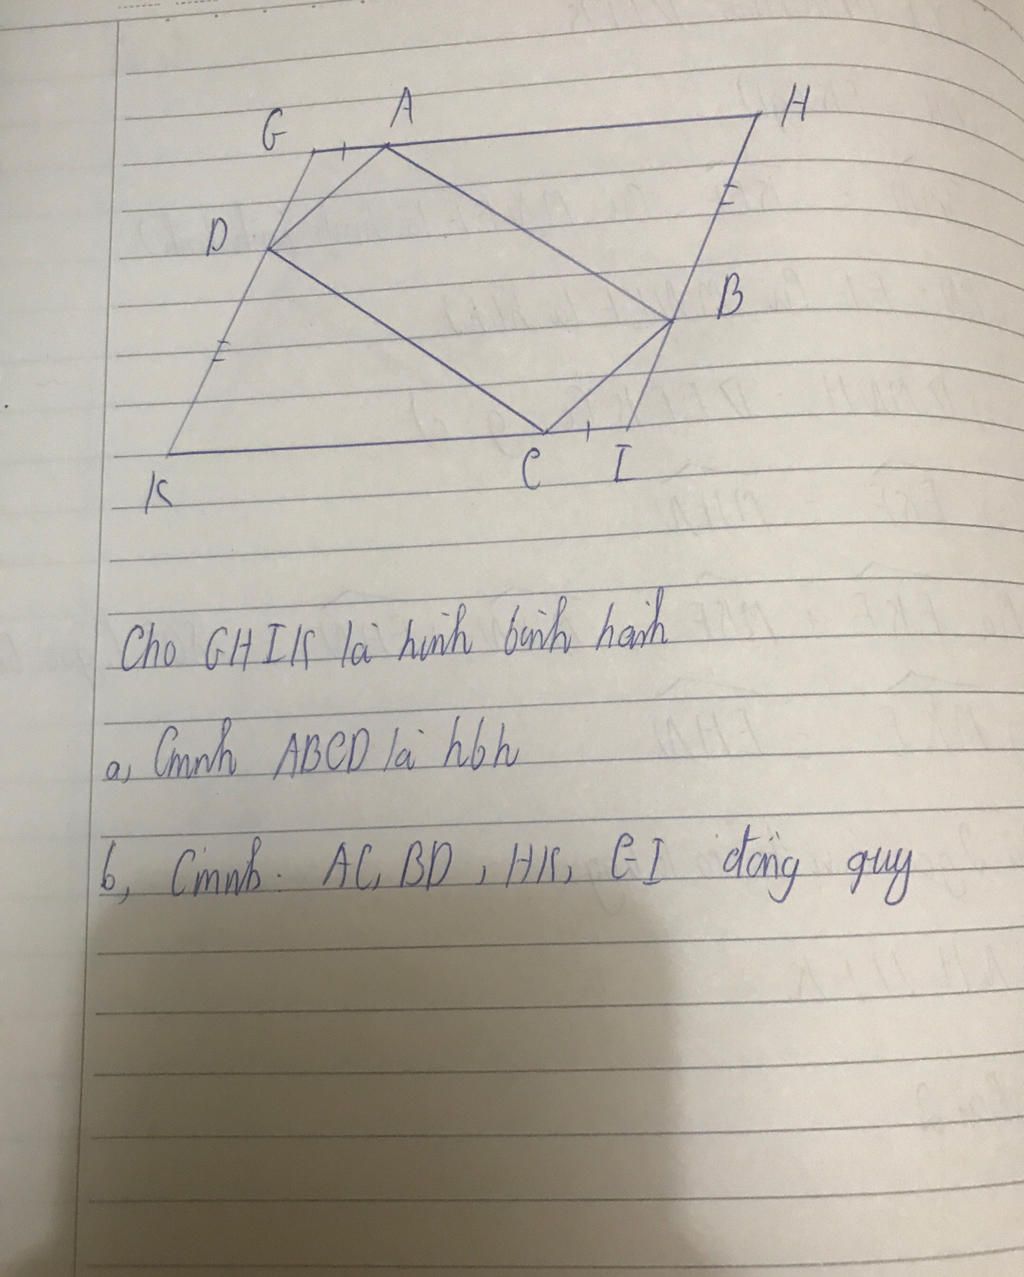 G A H
D B
K C I
Cho GHIK là hình bình hành
a, Cmnh ABCD là hbh
b, Cmnh. AC, BD, HK, GI đồng quy